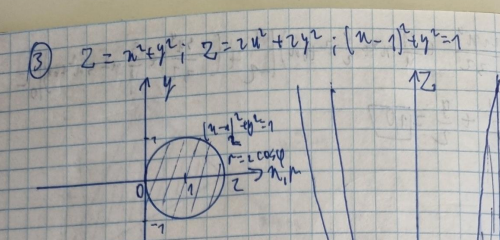 ③ Z = x²+y²; Z=2x²+2y²; (x-1)²+y²=1
y
Z
1
(x-1)²+y²=1
r=2cosφ
0 1 2 x, r
-1